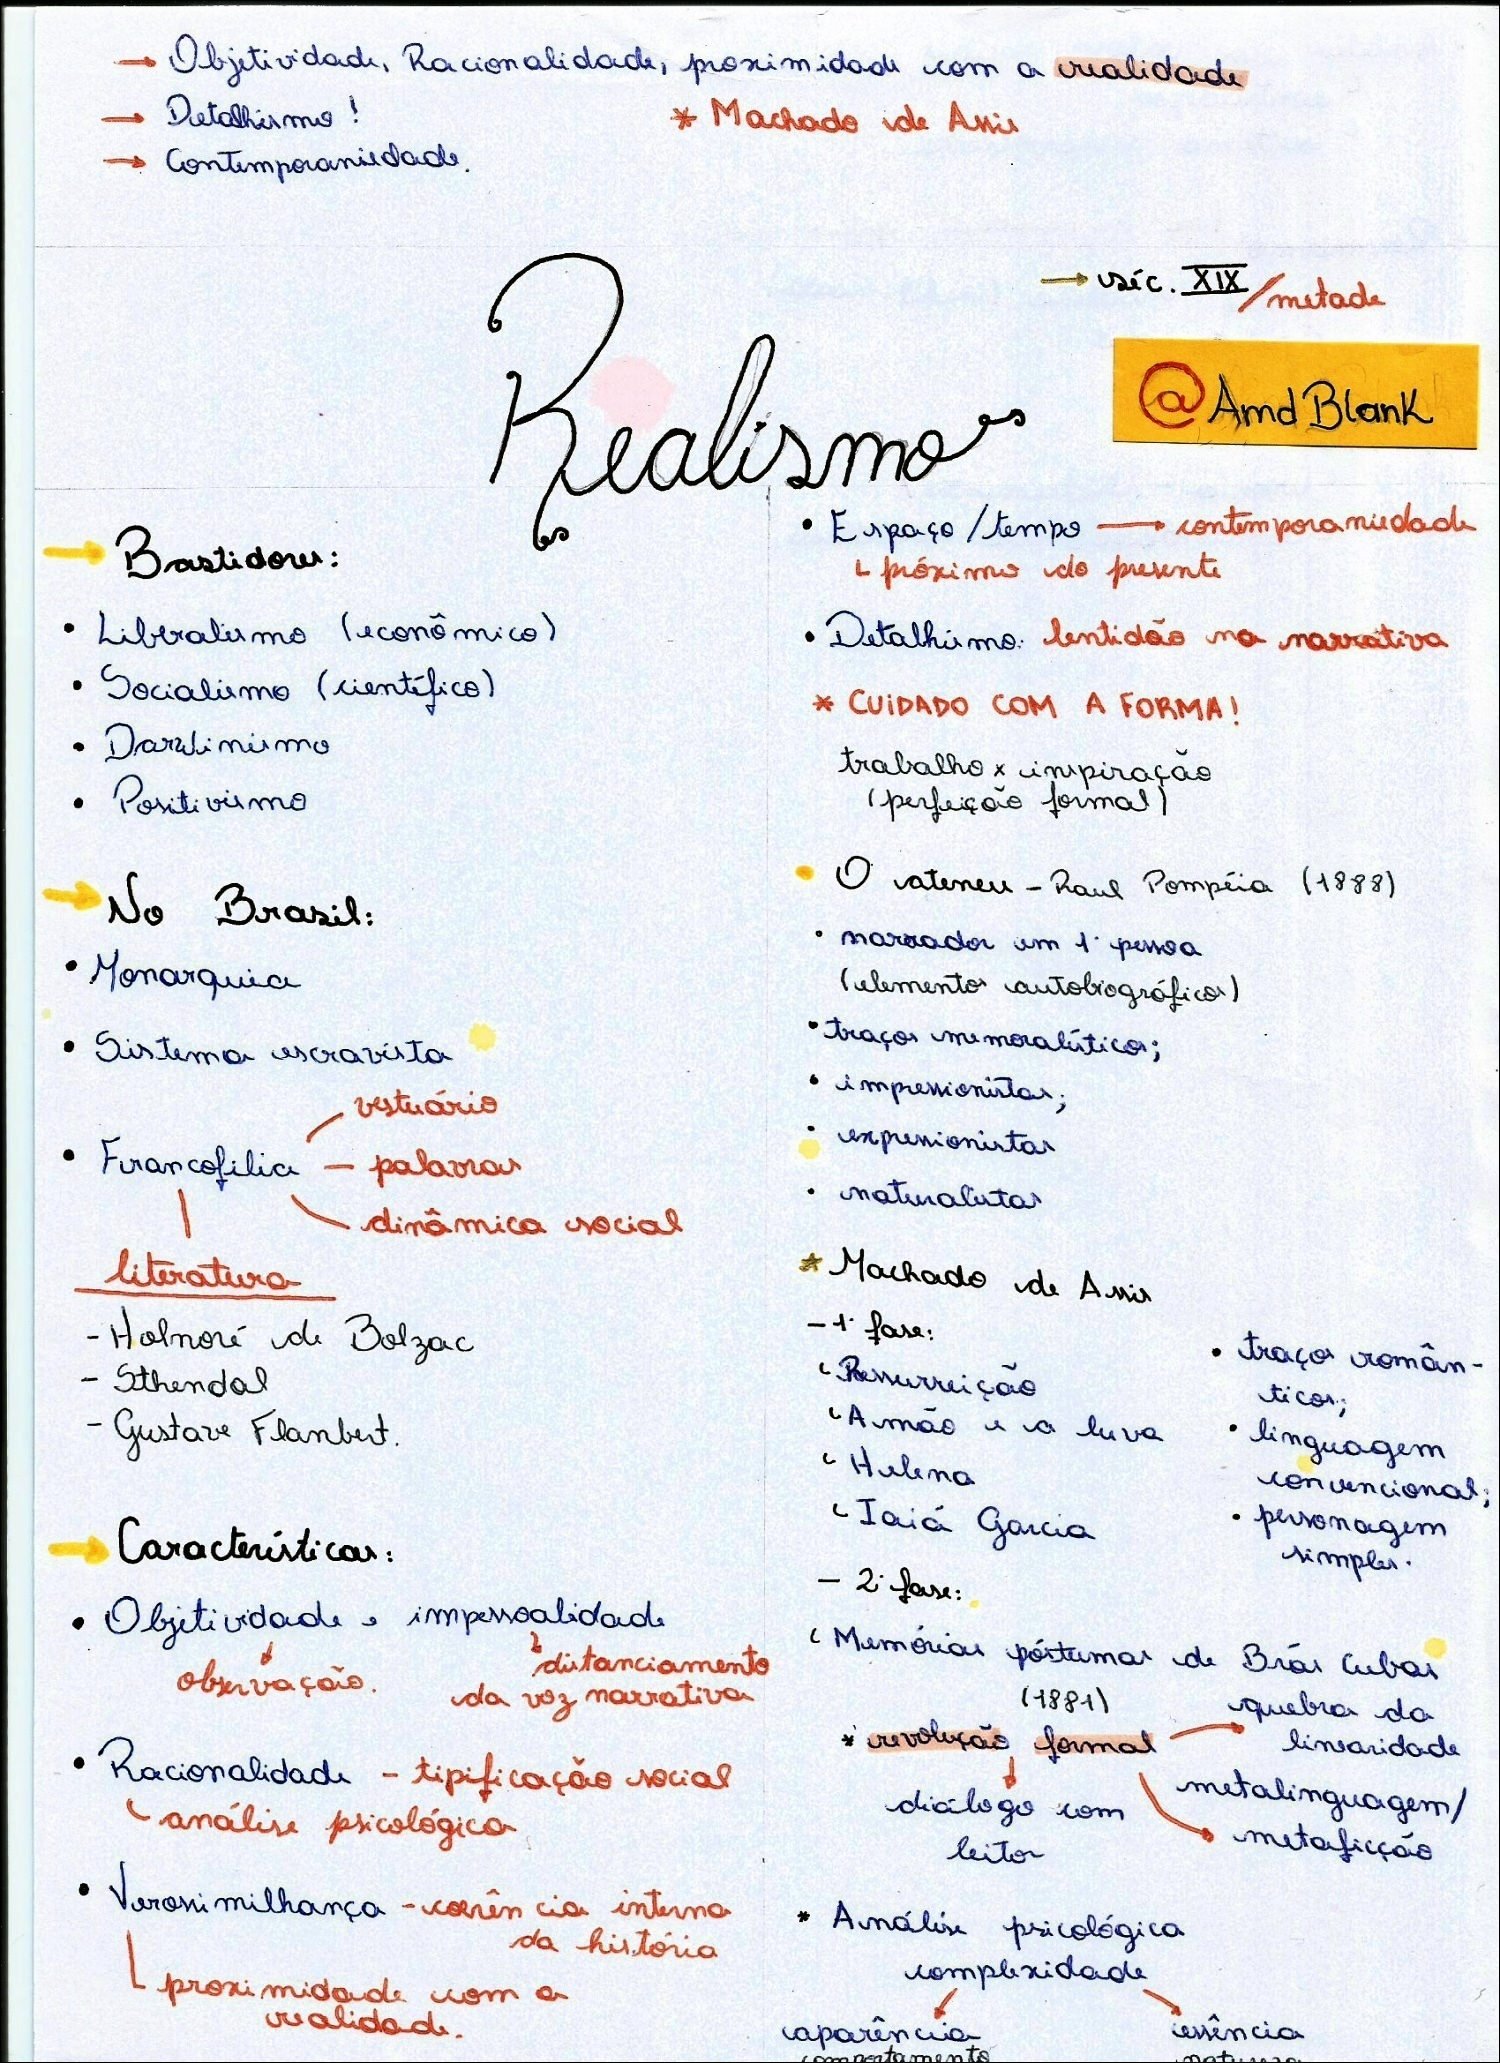 → Objetividade, Racionalidade, proximidade com a realidade
→ Detalhismo!
* Machado de Assis
→ Contemporaniedade.
→ séc. XIX/metade
Realismo
@AmdBlank
→ Bastidores:
• Liberalismo (econômico)
• Socialismo (científico)
• Darwinismo
• Positivismo
→ No Brasil:
• Monarquia
• Sistema escravista
• Francofilia
vestuário
— palavras
dinâmica social
literatura
- Holnoré de Bolzac
- Sthendal
- Gustave Flanbert.
→ Características:
• Objetividade e impessoalidade
observação.
distanciamento
da voz narrativa
• Racionalidade - tipificação social
análise psicológica
• Verossimilhança - coerência interna
da história
proximidade com a
realidade.
• Espaço/tempo → contemporaniedade
próximo do presente
• Detalhismo: lentidão na narrativa
* CUIDADO COM A FORMA!
trabalho x inspiração
(perfeição formal)
• O ateneu - Raul Pompéia (1888)
• narrador em 1ª pessoa
(elementos autobiográficos)
• traços memoralísticos;
• impressionistas;
• expressionistas
• naturalistas
* Machado de Assis
- 1ª fase:
Ressurreição
A mão e a luva
Helena
Iaiá Garcia
• traços român-
ticos;
• linguagem
convencional;
• personagem
simples.
- 2ª fase:
Memórias póstumas de Brás Cubas
(1881)
* revolução formal
quebra da
linearidade
diálogo com
leitor
metalinguagem/
metaficção
* Análise psicológica
complexidade
aparência
comportamento
essência
natureza